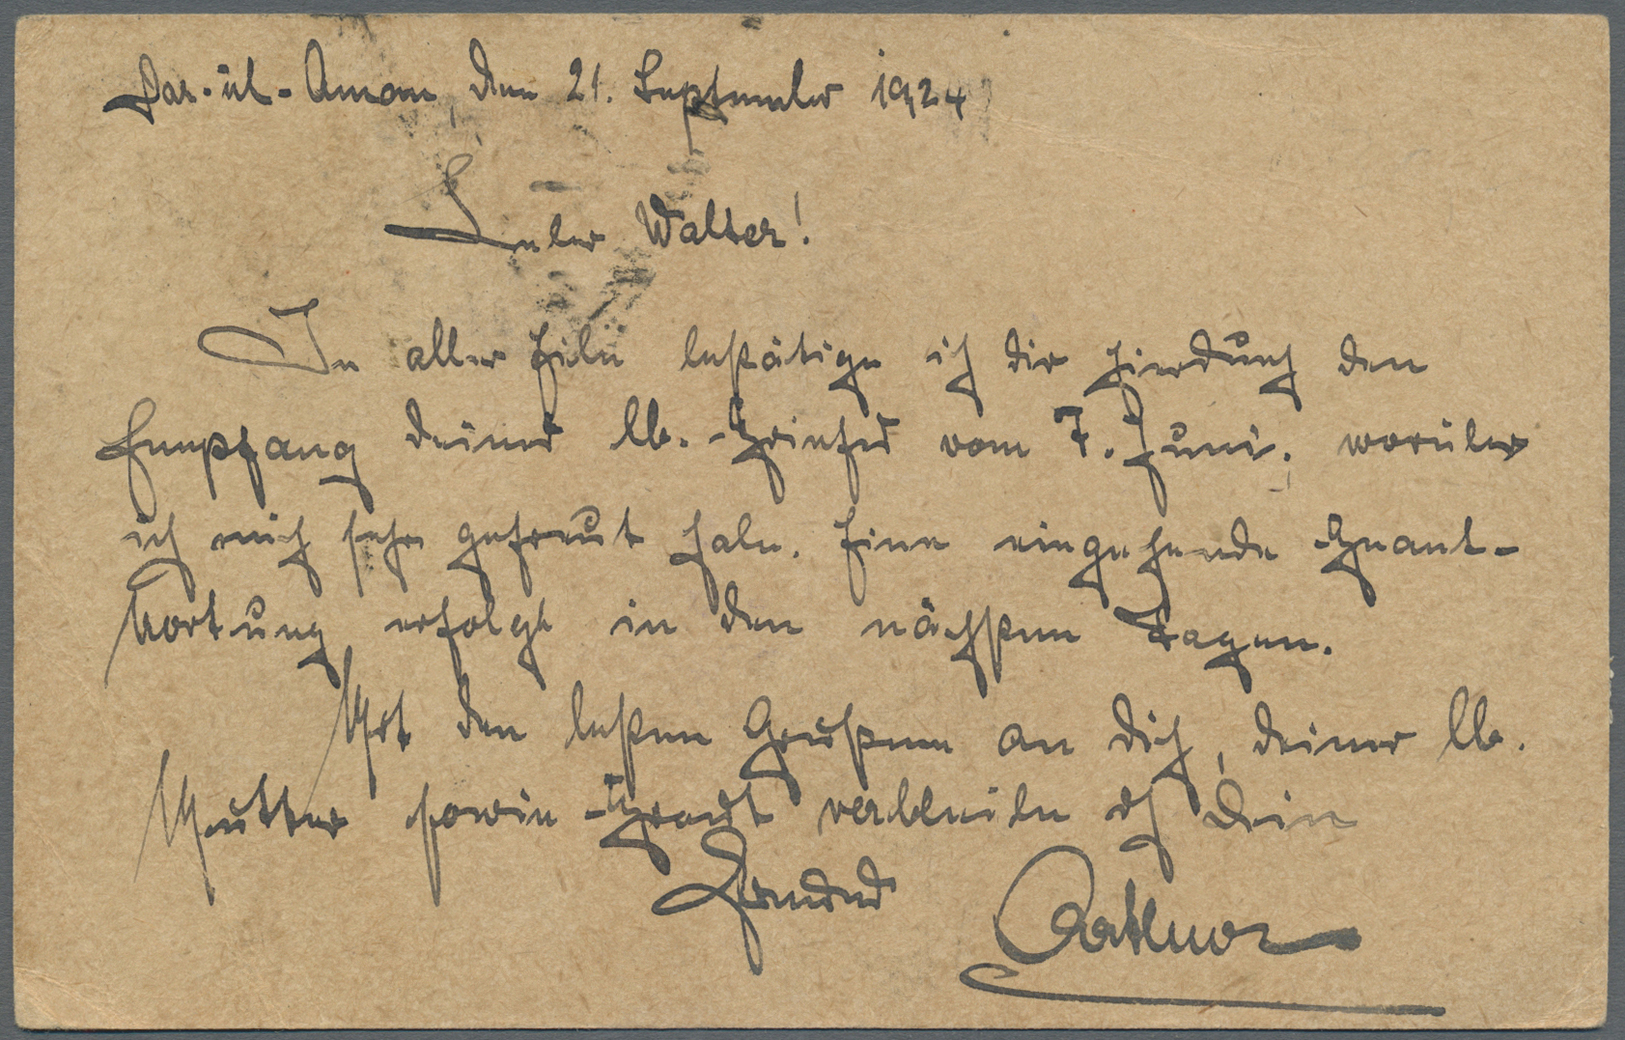 Dar-ul-Aman, den 21. September 1924
Lieber Walter!
In aller Eile bestätige ich dir hierdurch den
Empfang deines lb. Briefes vom 7. Juni, worüber
ich mich sehr gefreut habe. Eine eingehende Beant-
wortung erfolgt in den nächsten Tagen.
Mit den besten Grüßen an dich, deiner lb.
Mutter sowie Braut verbleibe ich Dein